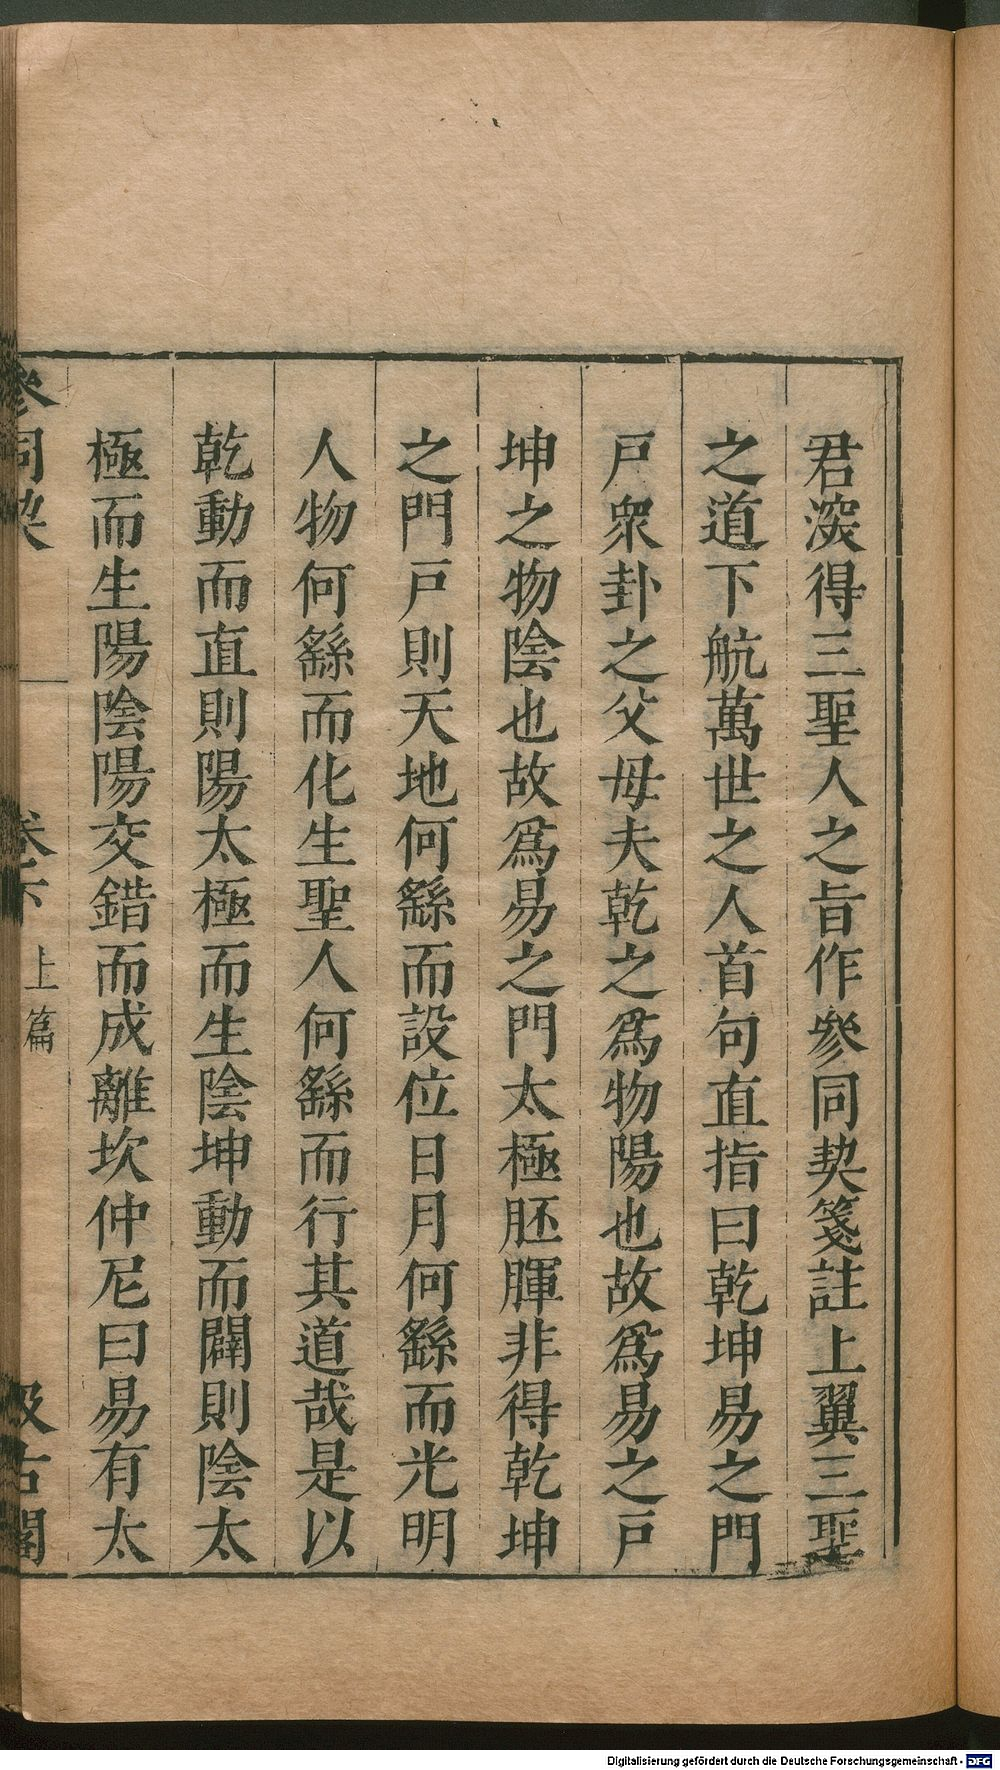 君深得三聖人之旨作參同契箋註上翼三聖
之道下航萬世之人首句直指曰乾坤易之門
戸衆卦之父母夫乾之爲物陽也故爲易之戸
坤之物陰也故爲易之門太極胚腪非得乾坤
之門戸則天地何繇而設位日月何繇而光明
人物何繇而化生聖人何繇而行其道哉是以
乾動而直則陽太極而生陰坤動而闢則陰太
極而生陽陰陽交錯而成離坎仲尼曰易有太
參同契 卷下 上篇 汲古閣
Digitalisierung gefördert durch die Deutsche Forschungsgemeinschaft - DFG